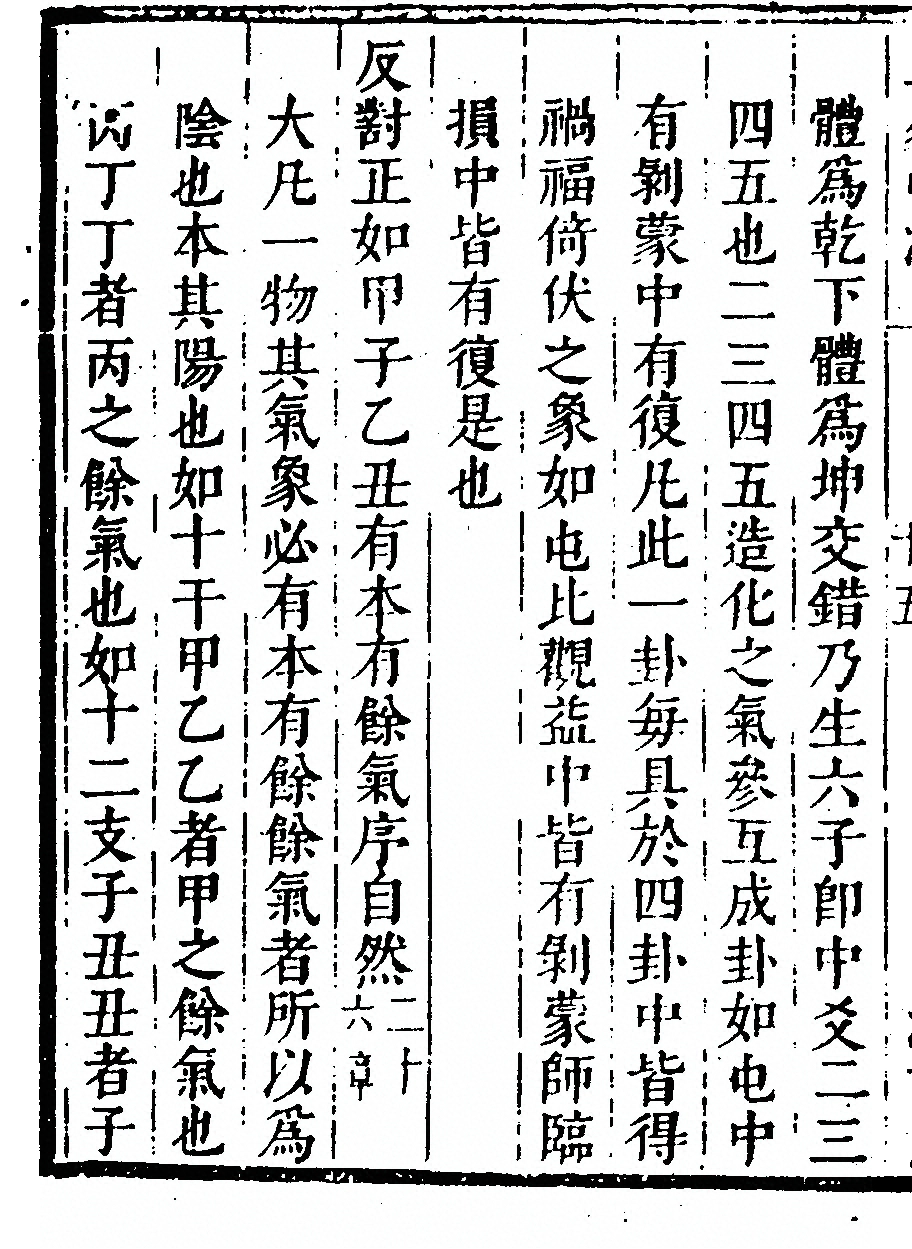 體爲乾下體爲坤交錯乃生六子卽中爻二三
四五也二三四五造化之氣參互成卦如屯中
有剝蒙中有復凡此一卦每具於四卦中皆得
禍福倚伏之象如屯比觀益中皆有剝蒙師臨
損中皆有復是也
反對正如甲子乙丑有本有餘氣序自然二十六章
大凡一物其氣象必有本有餘餘氣者所以爲
陰也本其陽也如十干甲乙乙者甲之餘氣也
丙丁丁者丙之餘氣也如十二支子丑丑者子